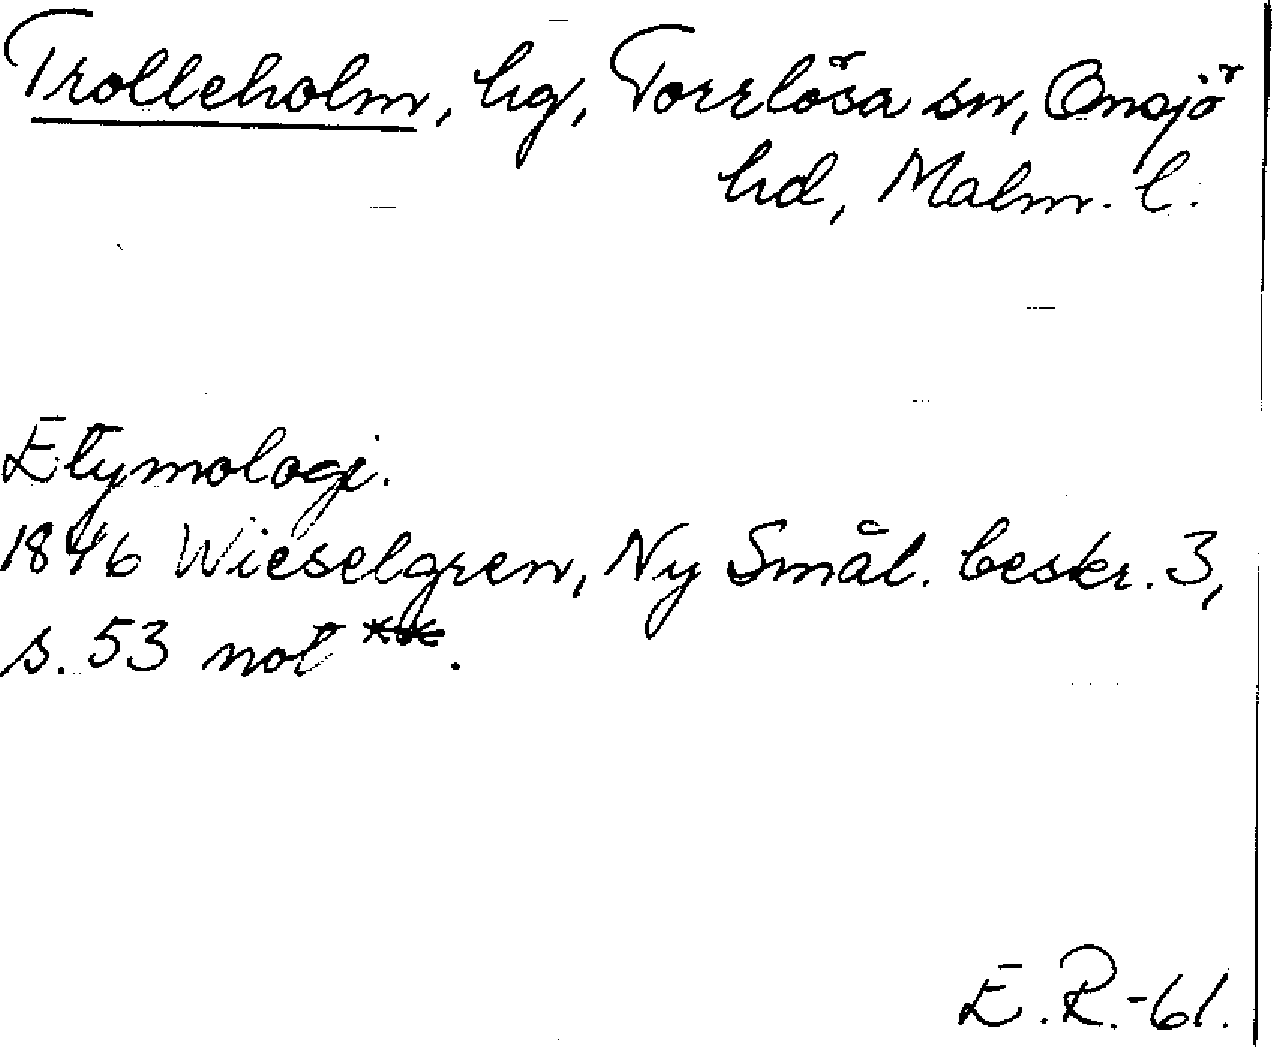 Trolleholm, hg, Torrlösa sn, Onsjö
hd, Malm. l.
Etymologi.
1846 Wieselgren, Ny Smål. beskr. 3,
s. 53 not ***.
E.R.-61.